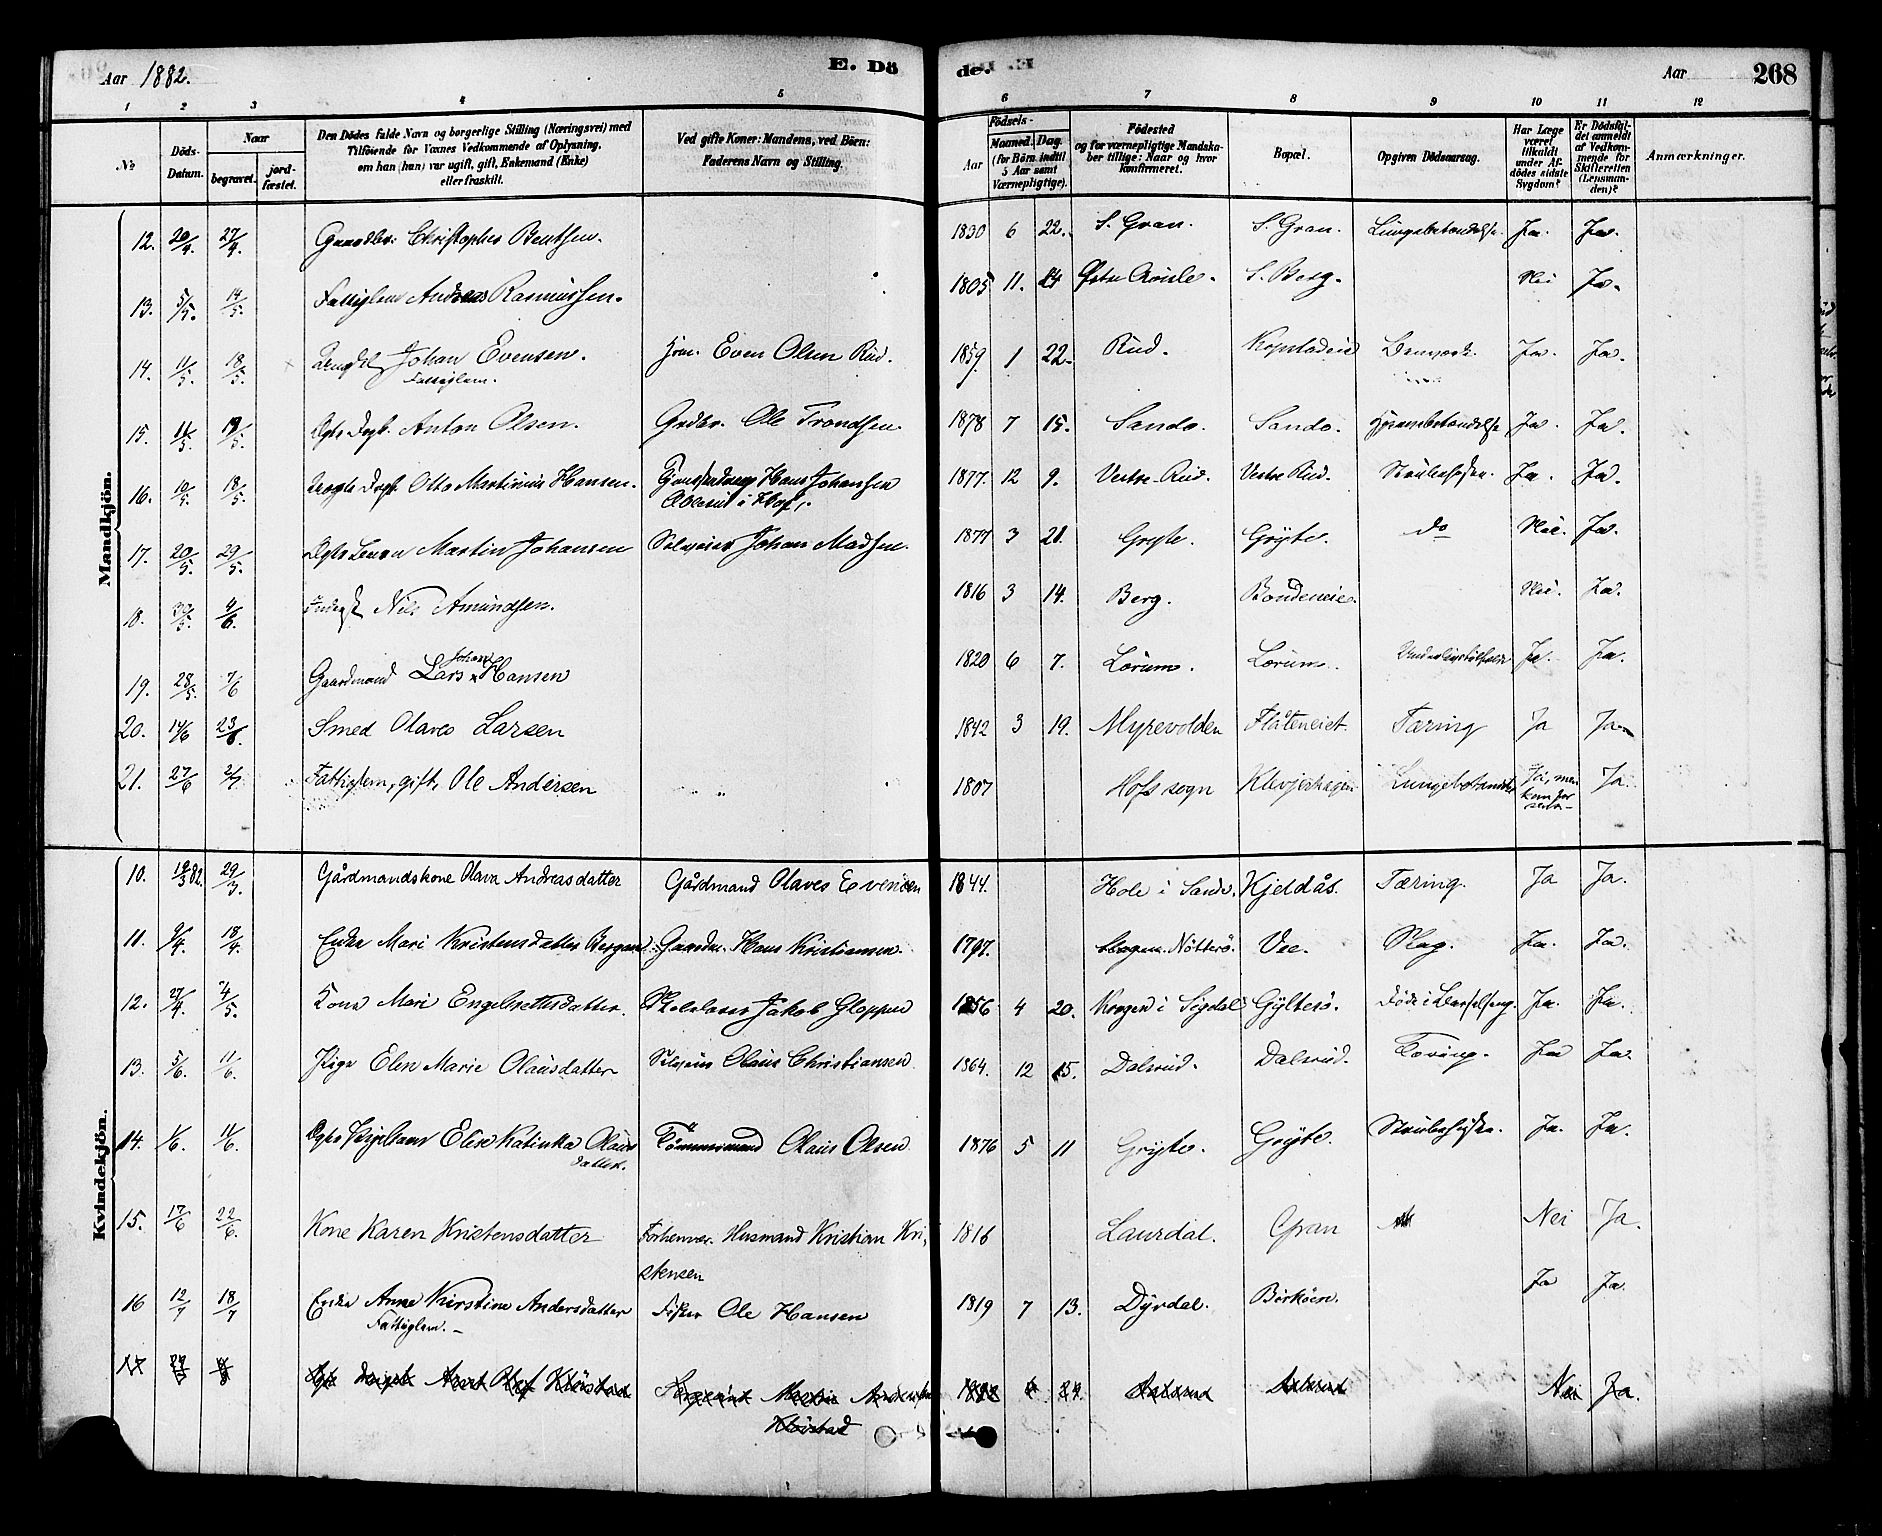 Aar 1882. E. Dö de. Aar 268
1 2 3 4 5 6 7 8 9 10 11 12
No Döds-Datum. Naar begravet. jord-fæstet. Den Dödes fulde Navn og borgerlige Stilling (Næringsvei) med Tilföiende for Voxnes Vedkommende af Oplysning, om han (hun) var ugift, gift, Enkemand (Enke) eller fraskilt. Ved gifte Koner: Mandens, ved Börn: Faderens Navn og Stilling. Födsels- Aar Maaned. Dag (for Börn indtil 5 Aar samt Værnepligtige). Födested og for værnepligtige Mandskaber tillige: Naar og hvor konfirmeret. Bopæl. Opgiven Dödsaarsag. Har Læge været tilkaldt under Afdödes sidste Sygdom? Er Dödsfaldet anmeldt af Vedkommende for Skifteretten (Lensmanden)? Anmærkninger.
Mandkjön.
12. 20/4. 27/4. Gaardbr: Christopher Bentsen. 1830 6 22. S. Gran. S. Gran. Lungebetændelse. Ja. Ja.
13. 5/5. 14/5. Fattiglem Andreas Rasmussen. 1805 11. 14 S. Berg. Nei Ja.
14. 11/5. 18/5. Johan Evensen. Fattiglem. Even Olsen Rud. 1859. 1 22. Rud. Kopstadeie Ja. Ja.
15. 11/5. 19/5. Anton Olsen. Grdbr. Ole Trondsen. 1878 7 15. Sando. Sando. Hjernebetændelse Ja. Ja.
16. 10/5. 18/5. Otto Martinius Hansen. Hans Johansen i Hof. 1877. 12 9. Vestre Rud. Vestre Rud. Strubehoste. Ja. Ja.
17. 20/5. 29/5. Martin Johansen Selveier Johan Madsen. 1877 3 21. Gryte. Gryte. do Nei. Ja.
18. 30/5. 4/6. Nils Amundsen. 1816 3 14. Berg. Bondeneie. Nei. Ja.
19. 28/5. 7/6 Gaardmand Lars Johan Hansen 1820 6 7. Lörum. Lörum. Ja. Ja.
20. 14/6 23/6. Smed Olaves Larsen 1842 3 19. Myrevolden Flåteneiet. Tæring Ja Ja.
21. 27/6 2/7 Fattiglem, gift, Ole Andersen 1807 Hofs sogn Klevjerhagen Lungebetændelse Ja, men kom for sent. Ja.
Kvindekjön.
10. 19/3 82. 29/3. Gårdmandskone Olava Andreasdatter Gårdmand Olaves Evensen 1844. Hole i Sande. Kjeldås. Tæring. Ja Ja.
11. 9/4. 18/4. Enke Mari Kristensdatter Gaardm. Hans Kristiansen. 1797. Nötterö. Vee. Slag. Ja. Ja.
12. 27/4. 4/5. Kone Mari Engebretsdatter. Skolelærer Jakob Gloppen 1856 4 20. Krogen i Sigdal Gylterö. Död i Barselseng. Ja. Ja.
13. 5/6. 11/6. Pige Elen Marie Olausdatter Selveier Olaus Christiansen 1864. 12 15. Dalsrud. Dalsrud. Tæring. Ja Ja.
14. 1/6. 11/6. Elise Katinka Olausdatter. Tömmermand Olaus Olsen 1876 5 11 Gryte. Gryte. Strubehoste. Ja. Ja.
15. 17/6 22/6. Kone Karen Kristensdatter Forhenvær. Husmand Kristian Kristensen 1816 Laurdal. Gran Nei Ja.
16 12/7 18/7 Enke Anne Kirstine Andersdatter Fattiglem. Fisker Ole Hansen 1819 7 13. Dyrdal. Börköen. Ja Ja.
Nei Ja.